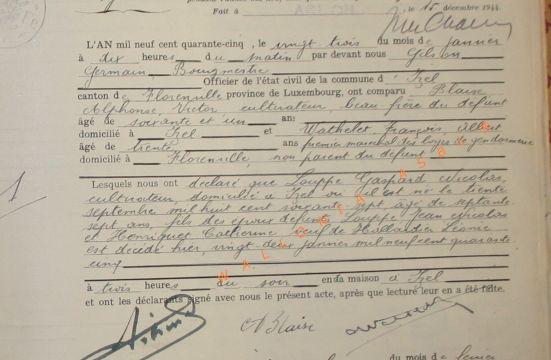 Fait à
le 15 décembre 1944.
L'AN mil neuf cent quarante-cinq, le vingt trois du mois de janvier
à dix heures du matin par devant nous Gilson
Germain Bourgmestre
Officier de l'état civil de la commune d' Izel
canton de Florenville province de Luxembourg, ont comparu Blaise
Alphonse, Victor cultivateur, beau frère du défunt
âgé de soixante et un ans
domicilié à Izel et Wathelet, François, Albert
âgé de trente ans premier marechal des logis de gendarmerie
domicilié à Florenville, non parent du défunt
Lesquels nous ont déclaré que Louppe Gaspard Nicolas,
cultivateur, domicilié à Izel où il est né le trente
septembre mil huit cent soixante sept âgé de septante
sept ans, fils des époux défunts Louppe Jean Nicolas
et Henriquet Catherine, veuf de Léonie
est décédé hier, vingt-deux janvier mil neuf cent quarante
cinq
à trois heures du soir en sa maison à Izel
et ont les déclarants signé avec nous le présent acte, après que lecture leur en a été faite.
ABlaise
du mois de